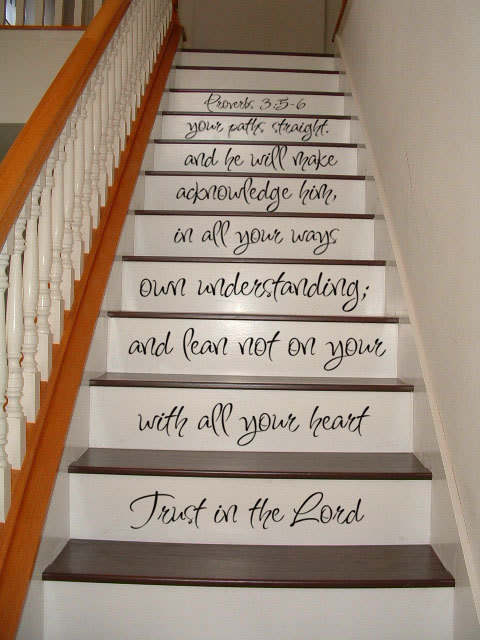 Trust in the Lord
with all your heart
and lean not on your
own understanding;
in all your ways
acknowledge him,
and he will make
your paths straight.
Proverbs 3:5-6